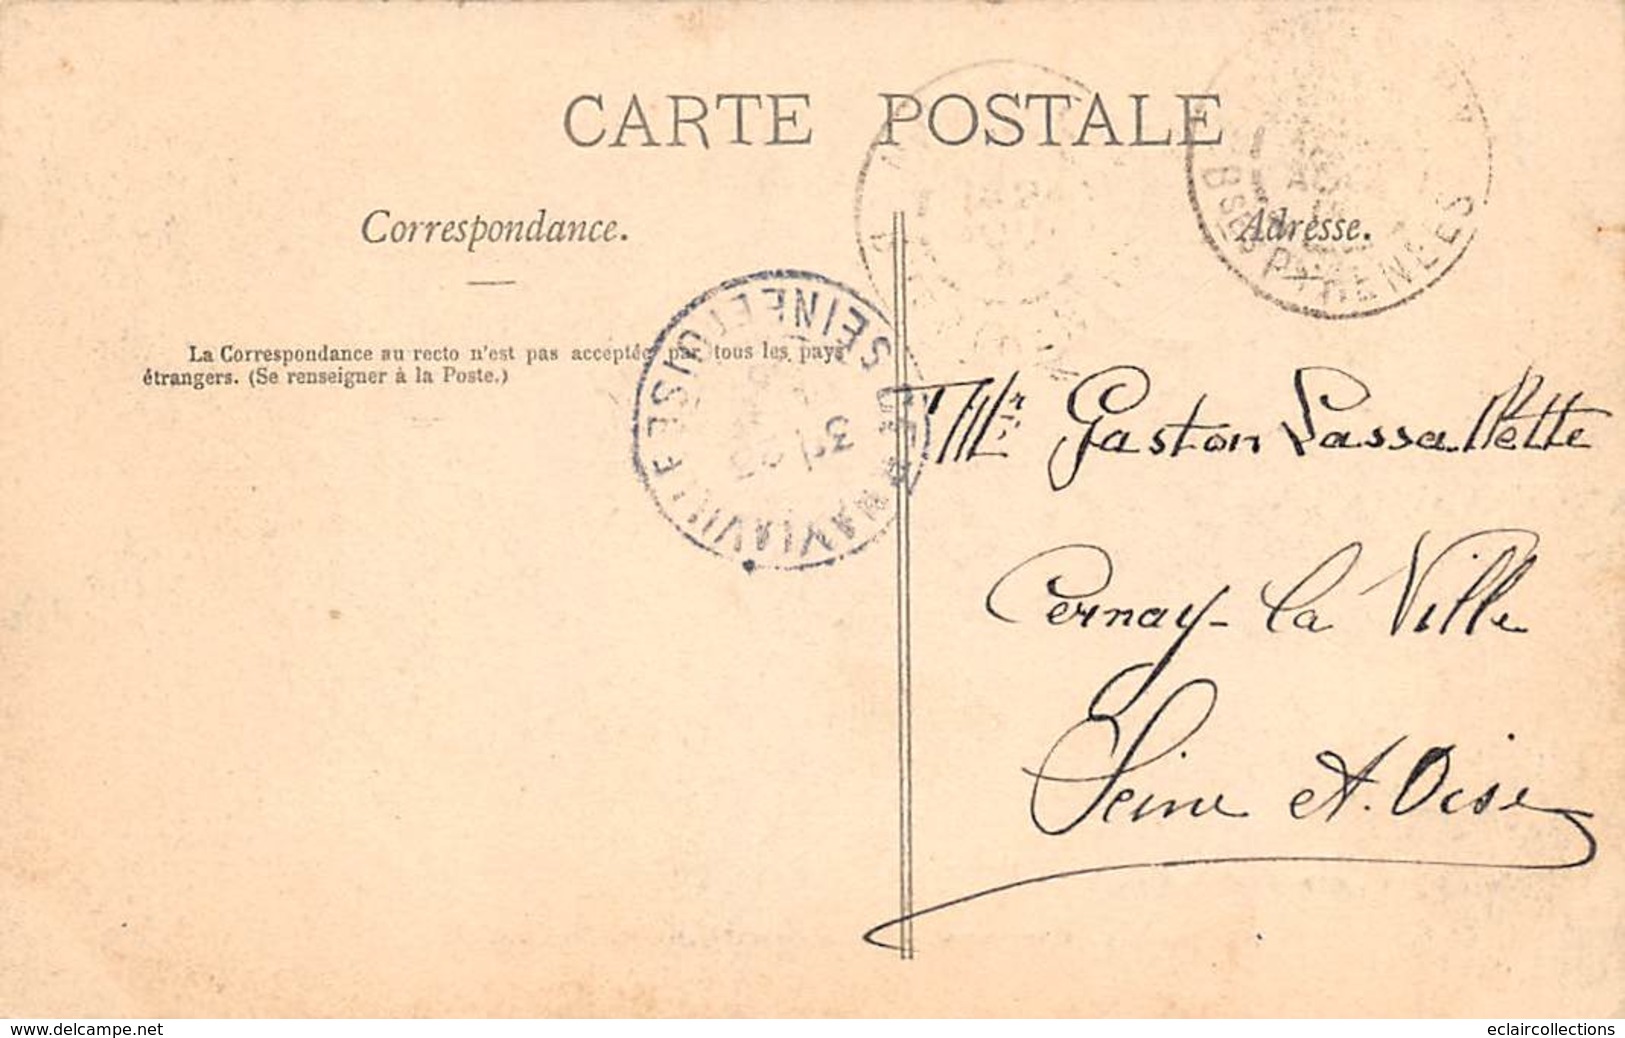 CARTE POSTALE
Correspondance.
Adresse.
La Correspondance au recto n'est pas acceptée par tous les pays
étrangers. (Se renseigner à la Poste.)
CERNAY LA VILLE
SEINE ET OISE
31
Bses PYRENEES
Mr Gaston Lassallette
Cernay-la Ville
Seine et. Oise
www.delcampe.net
eclaircollections